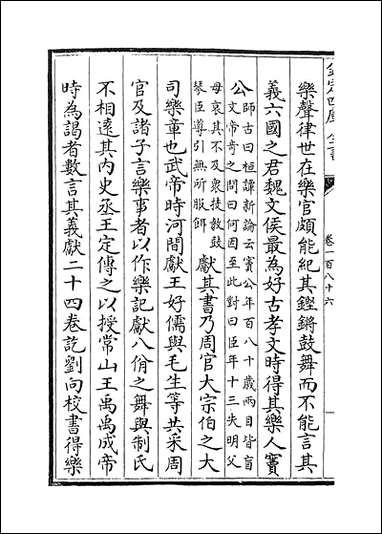 欽定四庫全書
卷一百八十六
樂聲律世在樂官頗能紀其鏗鏘鼓舞而不能言其
義六國之君魏文侯最為好古孝文時得其樂人竇
公師古曰桓譚新論云竇公年百八十歲兩目皆盲
文帝竒之問曰何因至此對曰臣年十三失明父
母哀其不及衆技教鼓
琴臣導引無所服餌獻其書乃周官大宗伯之大
司樂章也武帝時河間獻王好儒與毛生等共采周
官及諸子言樂事者以作樂記獻八佾之舞與制氏
不相逺其内史丞王定傳之以授常山王禹禹成帝
時為謁者數言其義獻二十四卷訖劉向校書得樂